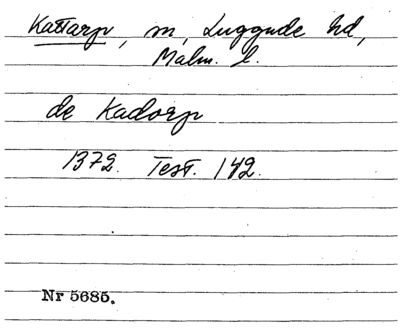 Kattarp, m, Luggude hd,
Malm. l.
de Kadorp
1372. Test. 142.
Nr 5685.